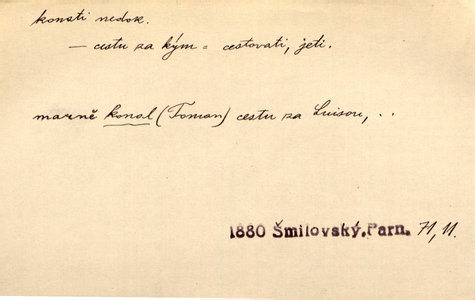 konati nedok.
— cestu za kým = cestovati, jeti.
marně konal (Toman) cestu za Luisou, . .
1880 Šmilovský, Parn. 71, 11.